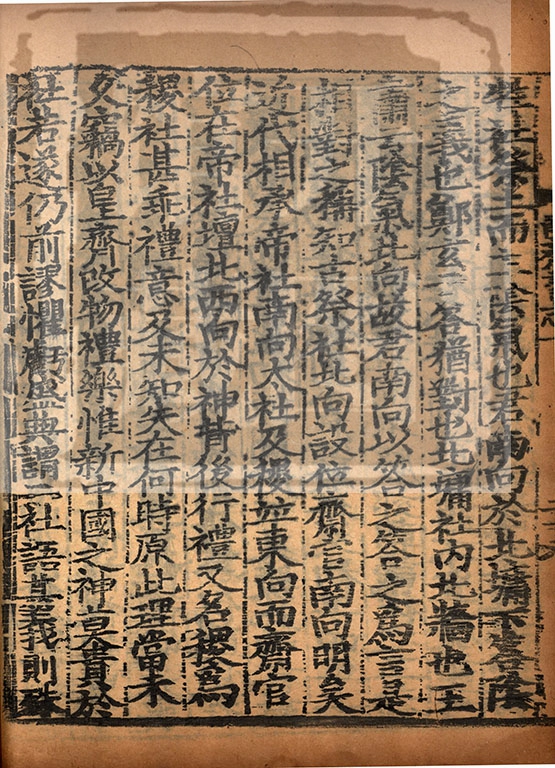 牲社祭土而主陰氣也君南向於北墉下答陰
之義也鄭玄云答猶對也北墉社內北牆也王
肅云陰氣北向故君南向以答之答之為言是
相對之稱知古祭社北向設位齋官南向明矣
近代相承帝社南向太社及稷並東向而齋官
位在帝社壇北西向於神背後行禮又名稷為
稷社甚乖禮意及未知失在何時原此理當未
久竊以皇齊改物禮樂惟新中國之神莫貴於
社若遂仍前謬懼虧盛典謂二社語其義則殊